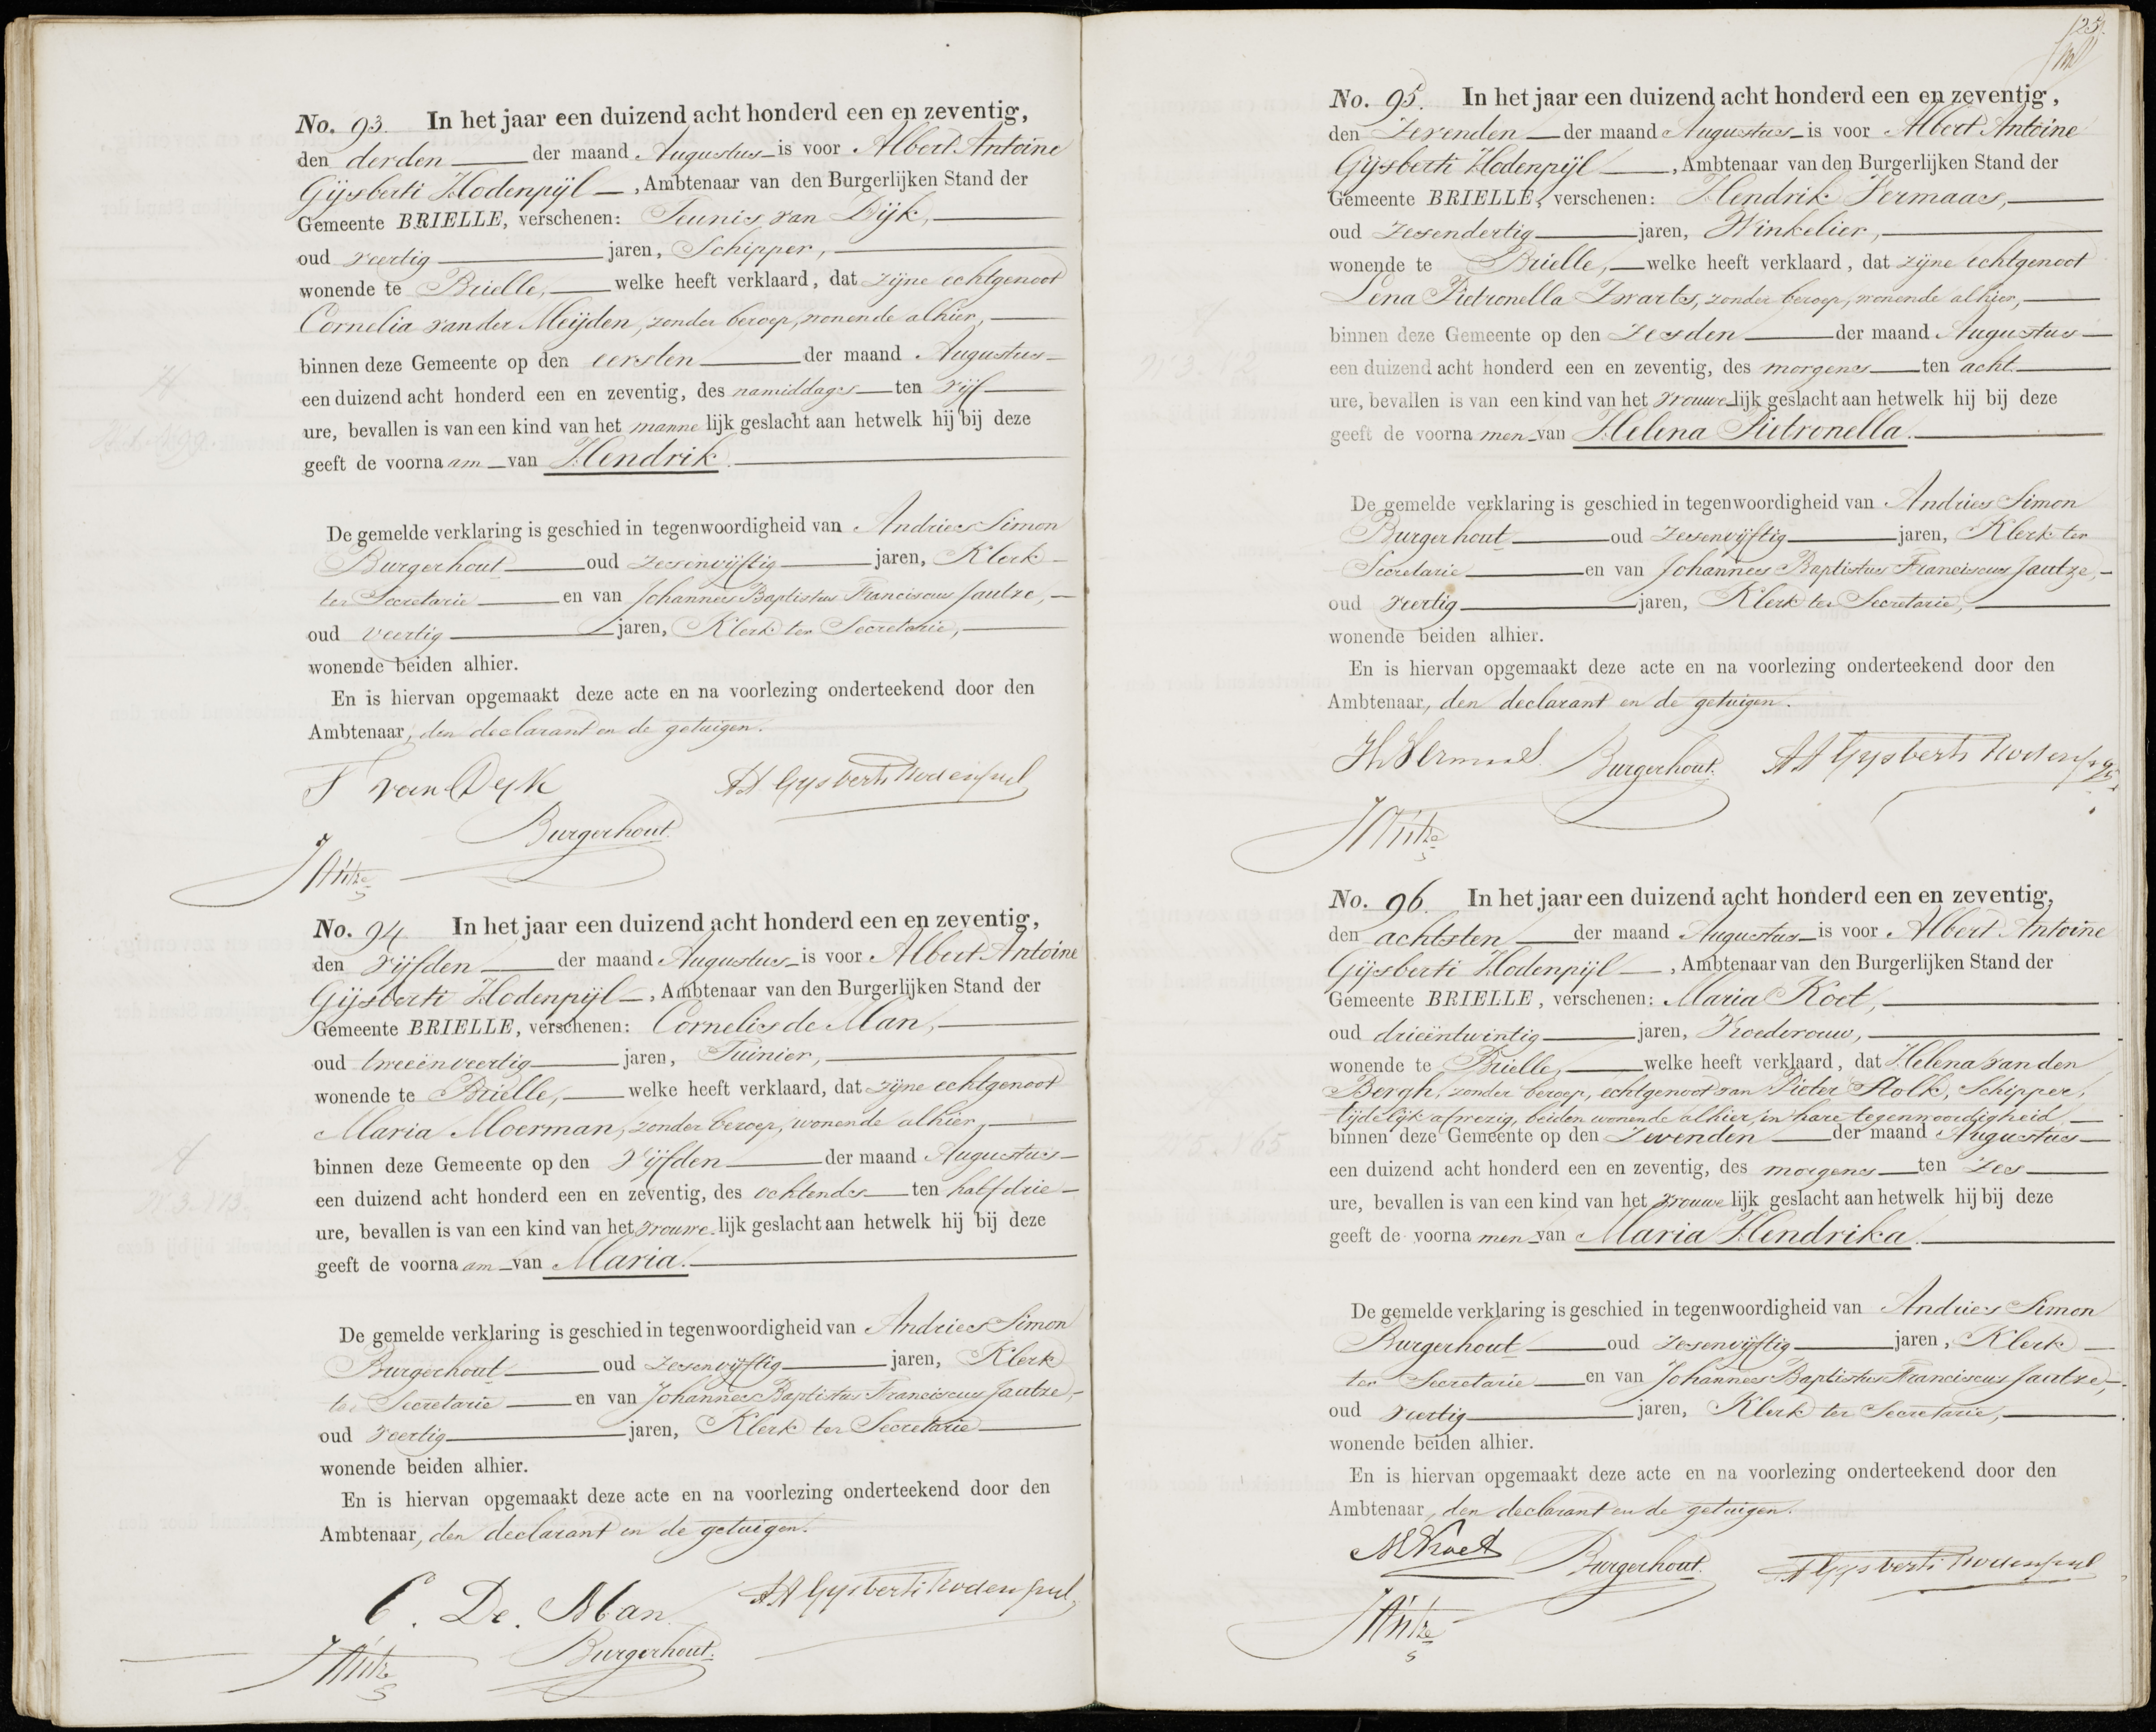 No. 93. In het jaar een duizend acht honderd een en zeventig,
den derden der maand Augustus is voor Albert Antoine
Gijsberti Hodenpijl, Ambtenaar van den Burgerlijken Stand der
Gemeente BRIELLE, verschenen: Teunis van Dijk,
oud veertig jaren, Schipper,
wonende te Brielle, welke heeft verklaard, dat zijne echtgenoot
Cornelia van der Meijden, zonder beroep, wonende alhier,
binnen deze Gemeente op den eersten der maand Augustus
een duizend acht honderd een en zeventig, des namiddags ten vijf
ure, bevallen is van een kind van het mannelijk geslacht aan hetwelk hij bij deze
geeft de voornaam van Hendrik.
De gemelde verklaring is geschied in tegenwoordigheid van Andries Simon
Burgerhout oud zesenvijftig jaren, Klerk
ter Secretarie en van Johannes Baptistus Franciscus Jautze,
oud veertig jaren, Klerk ter Secretarie,
wonende beiden alhier.
En is hiervan opgemaakt deze acte en na voorlezing onderteekend door den
Ambtenaar, den declarant en de getuigen.
T van Dyk AA Gysberti Hodenpyl
Burgerhout
No. 94. In het jaar een duizend acht honderd een en zeventig,
den vijfden der maand Augustus is voor Albert Antoine
Gijsberti Hodenpijl, Ambtenaar van den Burgerlijken Stand der
Gemeente BRIELLE, verschenen: Cornelis de Man,
oud tweeënveertig jaren, Tuinier,
wonende te Brielle, welke heeft verklaard, dat zijne echtgenoot
Maria Moerman, zonder beroep, wonende alhier,
binnen deze Gemeente op den vijfden der maand Augustus
een duizend acht honderd een en zeventig, des ochtends ten half drie
ure, bevallen is van een kind van het vrouwelijk geslacht aan hetwelk hij bij deze
geeft de voornaam van Maria.
De gemelde verklaring is geschied in tegenwoordigheid van Andries Simon
Burgerhout oud zesenvijftig jaren, Klerk
ter Secretarie en van Johannes Baptistus Franciscus Jautze,
oud veertig jaren, Klerk ter Secretarie
wonende beiden alhier.
En is hiervan opgemaakt deze acte en na voorlezing onderteekend door den
Ambtenaar, den declarant en de getuigen.
C. De. Man AA Gysberti Hodenpyl
Burgerhout.
125.
No. 95. In het jaar een duizend acht honderd een en zeventig,
den Zevenden der maand Augustus is voor Albert Antoine
Gijsberti Hodenpijl, Ambtenaar van den Burgerlijken Stand der
Gemeente BRIELLE, verschenen: Hendrik Vermaas,
oud zesendertig jaren, Winkelier,
wonende te Brielle, welke heeft verklaard, dat zijne echtgenoot
Lena Pietronella Zwarts, zonder beroep, wonende alhier,
binnen deze Gemeente op den Zesden der maand Augustus
een duizend acht honderd een en zeventig, des morgens ten acht
ure, bevallen is van een kind van het vrouwelijk geslacht aan hetwelk hij bij deze
geeft de voornamen van Helena Pietronella.
De gemelde verklaring is geschied in tegenwoordigheid van Andries Simon
Burgerhout oud zesenvijftig jaren, Klerk ter
Secretarie en van Johannes Baptistus Franciscus Jautze,
oud veertig jaren, Klerk ter Secretarie,
wonende beiden alhier.
En is hiervan opgemaakt deze acte en na voorlezing onderteekend door den
Ambtenaar, den declarant en de getuigen.
H Vermaas. Burgerhout. AA Gysberti Hodenpyl
No. 96. In het jaar een duizend acht honderd een en zeventig,
den achtsten der maand Augustus is voor Albert Antoine
Gijsberti Hodenpijl, Ambtenaar van den Burgerlijken Stand der
Gemeente BRIELLE, verschenen: Maria Koet,
oud drieëntwintig jaren, Vroedvrouw,
wonende te Brielle, welke heeft verklaard, dat Helena van den
Bergh, zonder beroep, echtgenoot van Pieter Stolk, Schipper,
tijdelijk afwezig, beiden wonende alhier, in hare tegenwoordigheid
binnen deze Gemeente op den Zevenden der maand Augustus
een duizend acht honderd een en zeventig, des morgens ten Zes
ure, bevallen is van een kind van het vrouwelijk geslacht aan hetwelk hij bij deze
geeft de voornamen van Maria Hendrika.
De gemelde verklaring is geschied in tegenwoordigheid van Andries Simon
Burgerhout oud zesenvijftig jaren, Klerk
ter Secretarie en van Johannes Baptistus Franciscus Jautze,
oud veertig jaren, Klerk ter Secretarie,
wonende beiden alhier.
En is hiervan opgemaakt deze acte en na voorlezing onderteekend door den
Ambtenaar, den declarant en de getuigen.
M Koet Burgerhout. AA Gysberti Hodenpyl